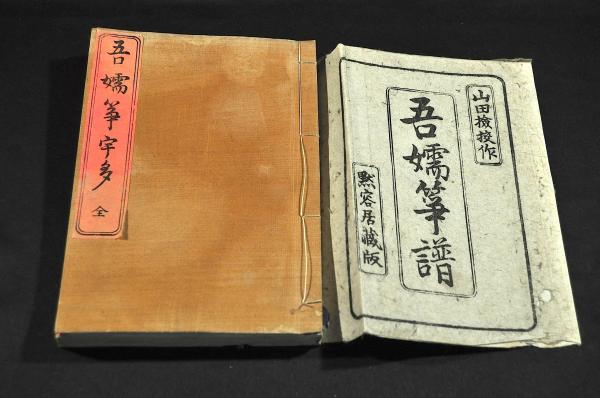 吾嬬箏宇多
全
山田撿挍作
吾嬬箏譜
黙容居藏版